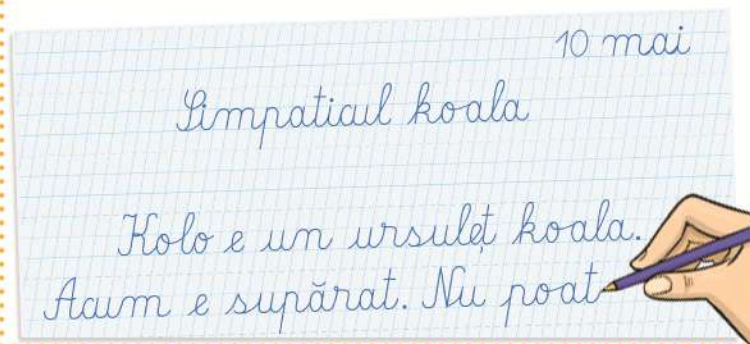 10 mai
Simpaticul koala
Kolo e un ursuleț koala.
Acum e supărat. Nu poat